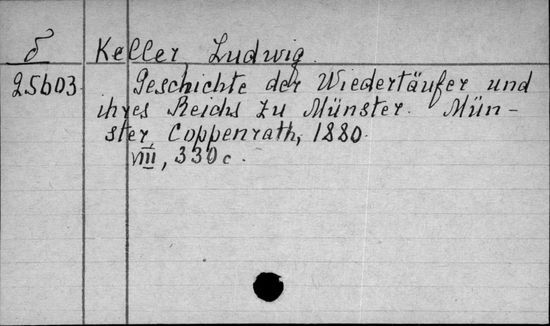 δ Keller, Ludwig.
25603. Geschichte der Wiedertäufer und
ihres Reichs zu Münster. Mün-
ster, Coppenrath, 1880.
VIII, 330 c.